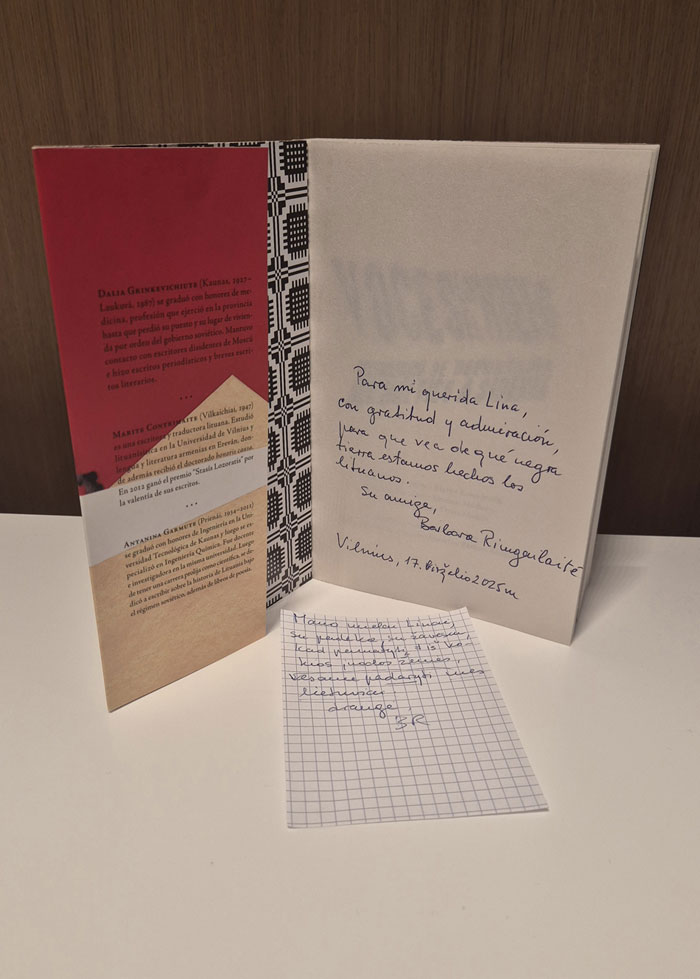 DALIA GRINKEVICHIUTE (Kaunas, 1927–
Leukuva, 1987) se graduó con honores de me-
dicina, profesión que ejerció en la provincia
hasta que perdió su puesto y su lugar de vivien-
da por orden del gobierno soviético. Mantuvo
contacto con escritores disidentes de Moscú
e hizo escritos periodísticos y breves escri-
tos literarios.
MARITE CONTRIMAITE (Vilkaichiai, 1947)
es una escritora y traductora lituana. Estudió
lituanística en la Universidad de Vilnius y
lengua y literatura armenias en Ereván, don-
de además recibió el doctorado honoris causa.
En 2012 ganó el premio "Stasis Lozoratis" por
la valentía de sus escritos.
ANTANINA GARMUTE (Prienai, 1934-2021)
se graduó con honores de Ingeniería en la Uni-
versidad Tecnológica de Kaunas y luego se es-
pecializó en Ingeniería Química. Fue docente
e investigadora en la misma universidad. Luego
de tener una carrera prolija como científica, se de-
dicó a escribir sobre la historia de Lituania bajo
el régimen soviético, además de libros de poesía.
Para mi querida Lina,
con gratitud y admiración,
para que vea de qué negra
tierra estamos hechos los
lituanos.
Su amiga,
Barbara
Vilnius, 17. birželio 2025 m
Mano mielai Linai,
su padėka, su
kad pamatytų iš ko-
kios juodos žemės,
esame padaryti mes
lietuviai
draugė
BR